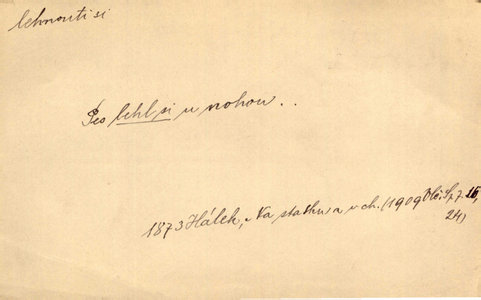 lehnouti si
Pes lehl si u nohou..
1873 Hálek, Na statku a v ch. (1909 Sp. 7. 16,
24)